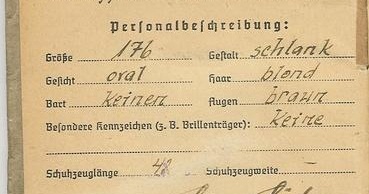 Personalbeschreibung:
Größe 176 Gestalt schlank
Gesicht oval Haar blond
Bart keinen Augen braun
Besondere Kennzeichen (z. B. Brillenträger): keine
Schuhzeuglänge 42 Schuhzeugweite